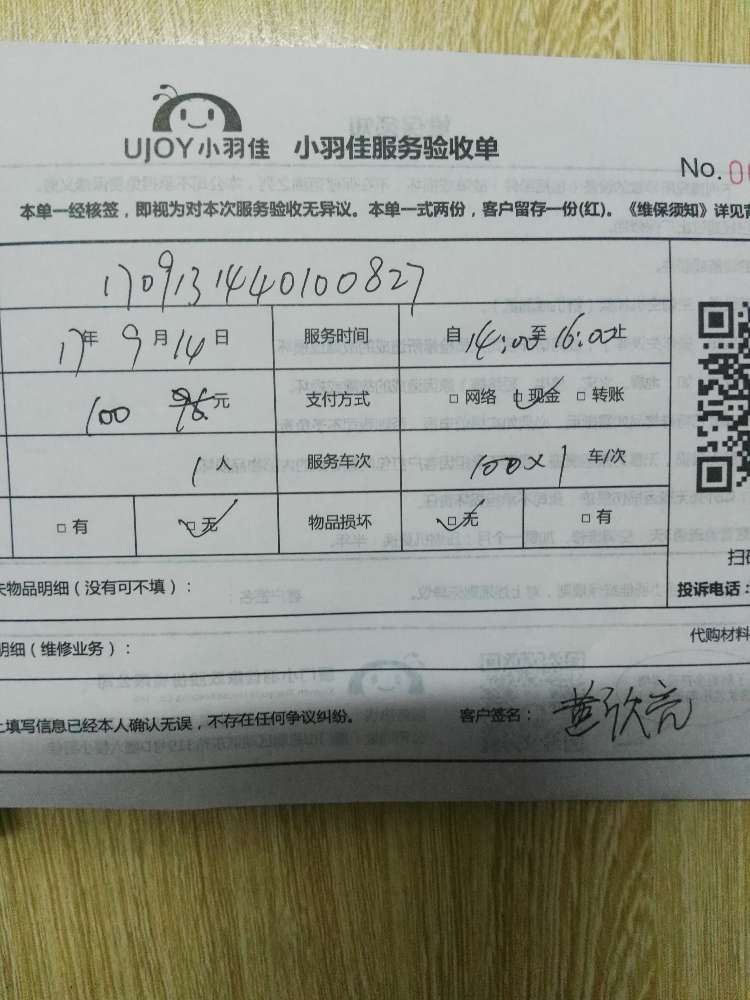 UJOY小羽佳 小羽佳服务验收单
No. 0
本单一经核签，即视为对本次服务验收无异议。本单一式两份，客户留存一份(红)。《维保须知》详见
170913144010082​7
17年 9月14日 服务时间 自14:00至16:00止
100 元 支付方式 □ 网络 □ 现金 □ 转账
1人 服务车次 100×1 车/次
□ 有 □ 无 物品损坏 □ 无 □ 有
扫
物品明细（没有可不填）： 投诉电话：
代购材料
明细（维修业务）：
上填写信息已经本人确认无误，不存在任何争议纠纷。 客户签名：黄欣亮